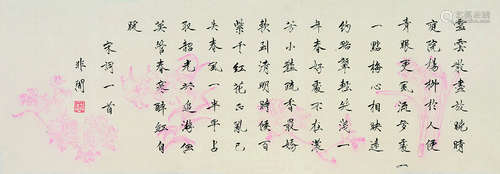 雪雲散盡放曉晴
庭院楊柳於人便
青眼更風流多處一
一點梅心相映遠
約略顰輕笑淺一
年春好處不在濃
芳小豔疏香最嬌
軟到清明時候百
紫千紅花正亂已
失春風一半早占
取韶光共追遊但
莫管春寒醉紅自
暖
宋詞一首
非闇